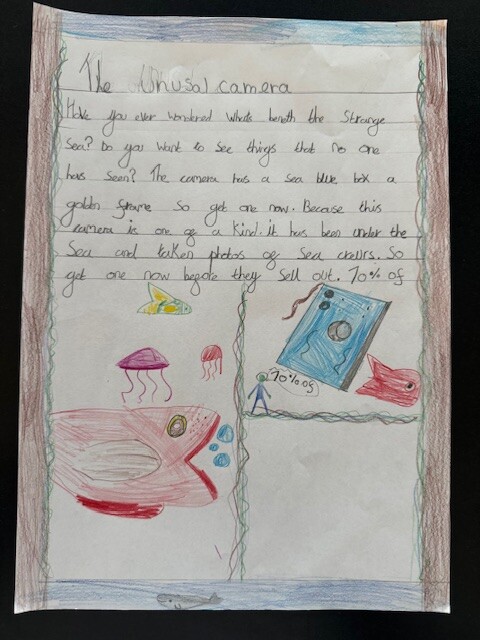 The Unusal camera
Have you ever wondered whats beneth the Strange
Sea? Do you want to see things that no one
has seen? The camera has a sea blue box a
golden frame So get one now. Because this
camera is one of a kind. it has been under the
Sea and taken photos of Sea creturs. So
get one now before they sell out. 70% of
70% of